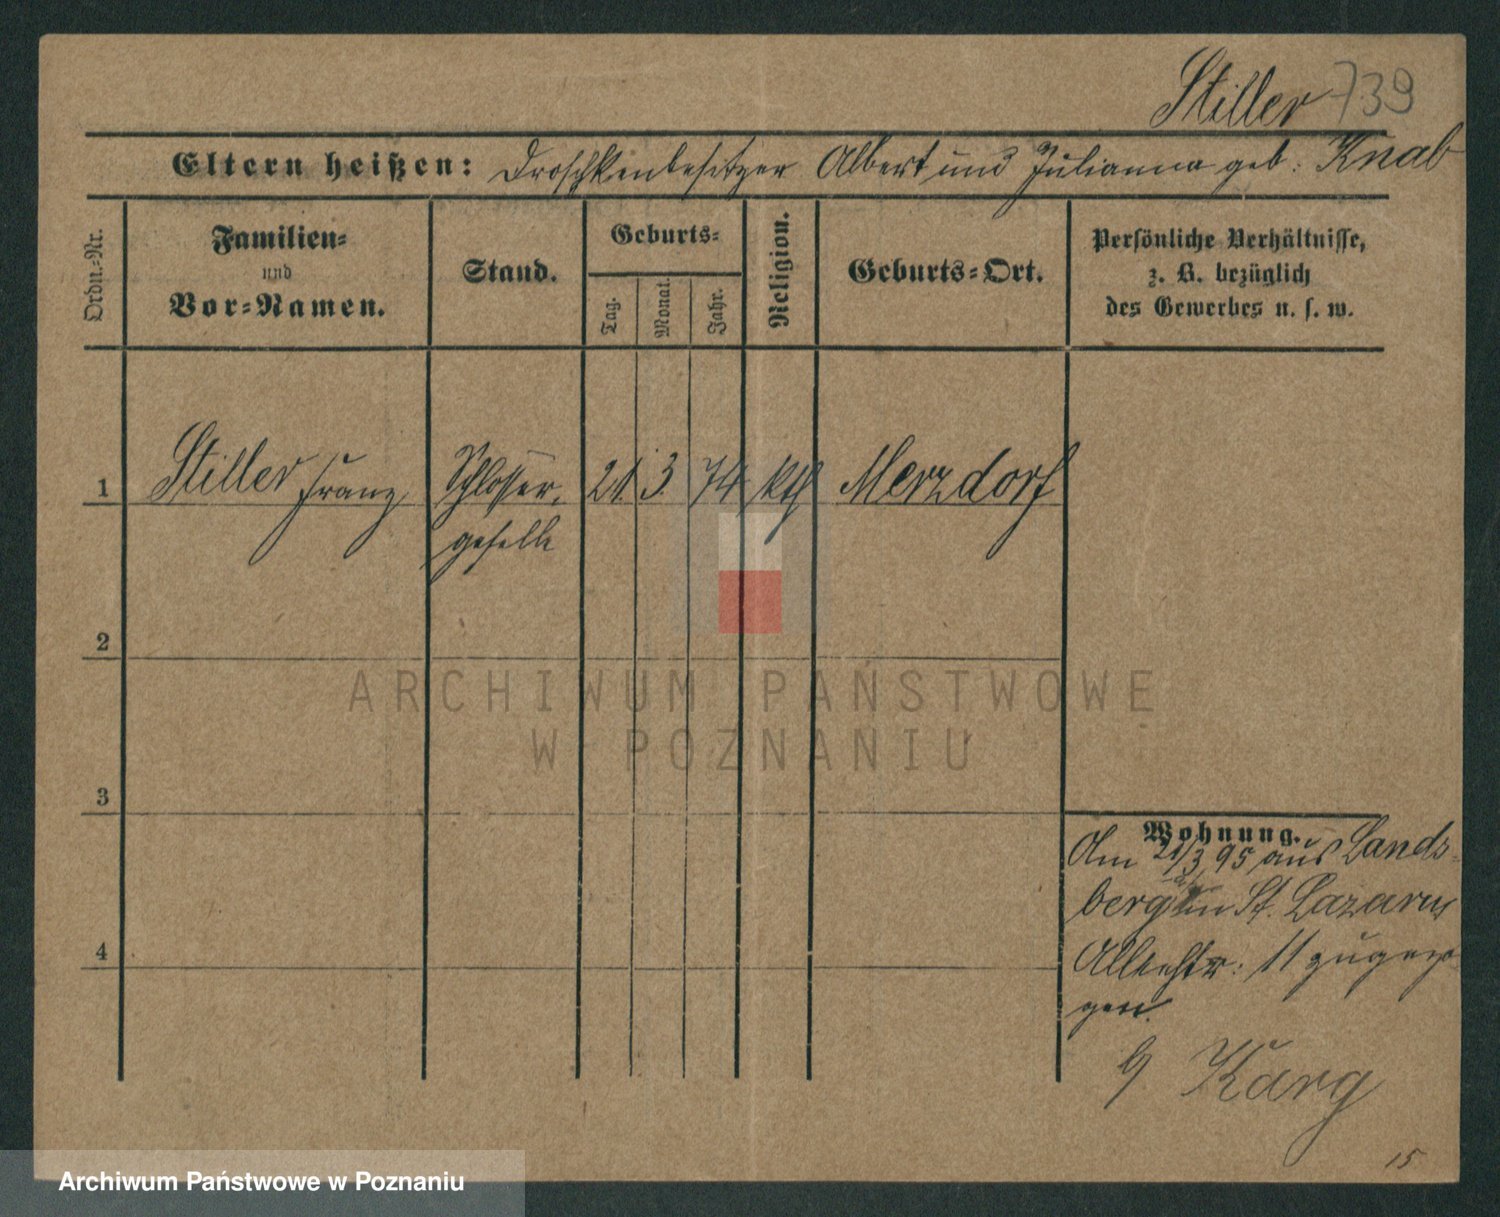 Stiller 739
Eltern heißen: Droschkenbesitzer Albert und Julianna geb: Knab
Ordn.-Nr.
Familien-
und
Vor-Namen.
Stand.
Geburts-
Tag.
Monat.
Jahr.
Religion.
Geburts-Ort.
Persönliche Verhältnisse,
z. B. bezüglich
des Gewerbes u. s. w.
1 Stiller Franz Schlosser- 21. 3. 74 kth Merzdorf
geselle
2
3
4
Wohnung.
Am 21/3 95 aus Lands-
berg in St. Lazarus
11 zugezo
gen.
Karg
15
ARCHIWUM PAŃSTWOWE
W POZNANIU
Archiwum Państwowe w Poznaniu